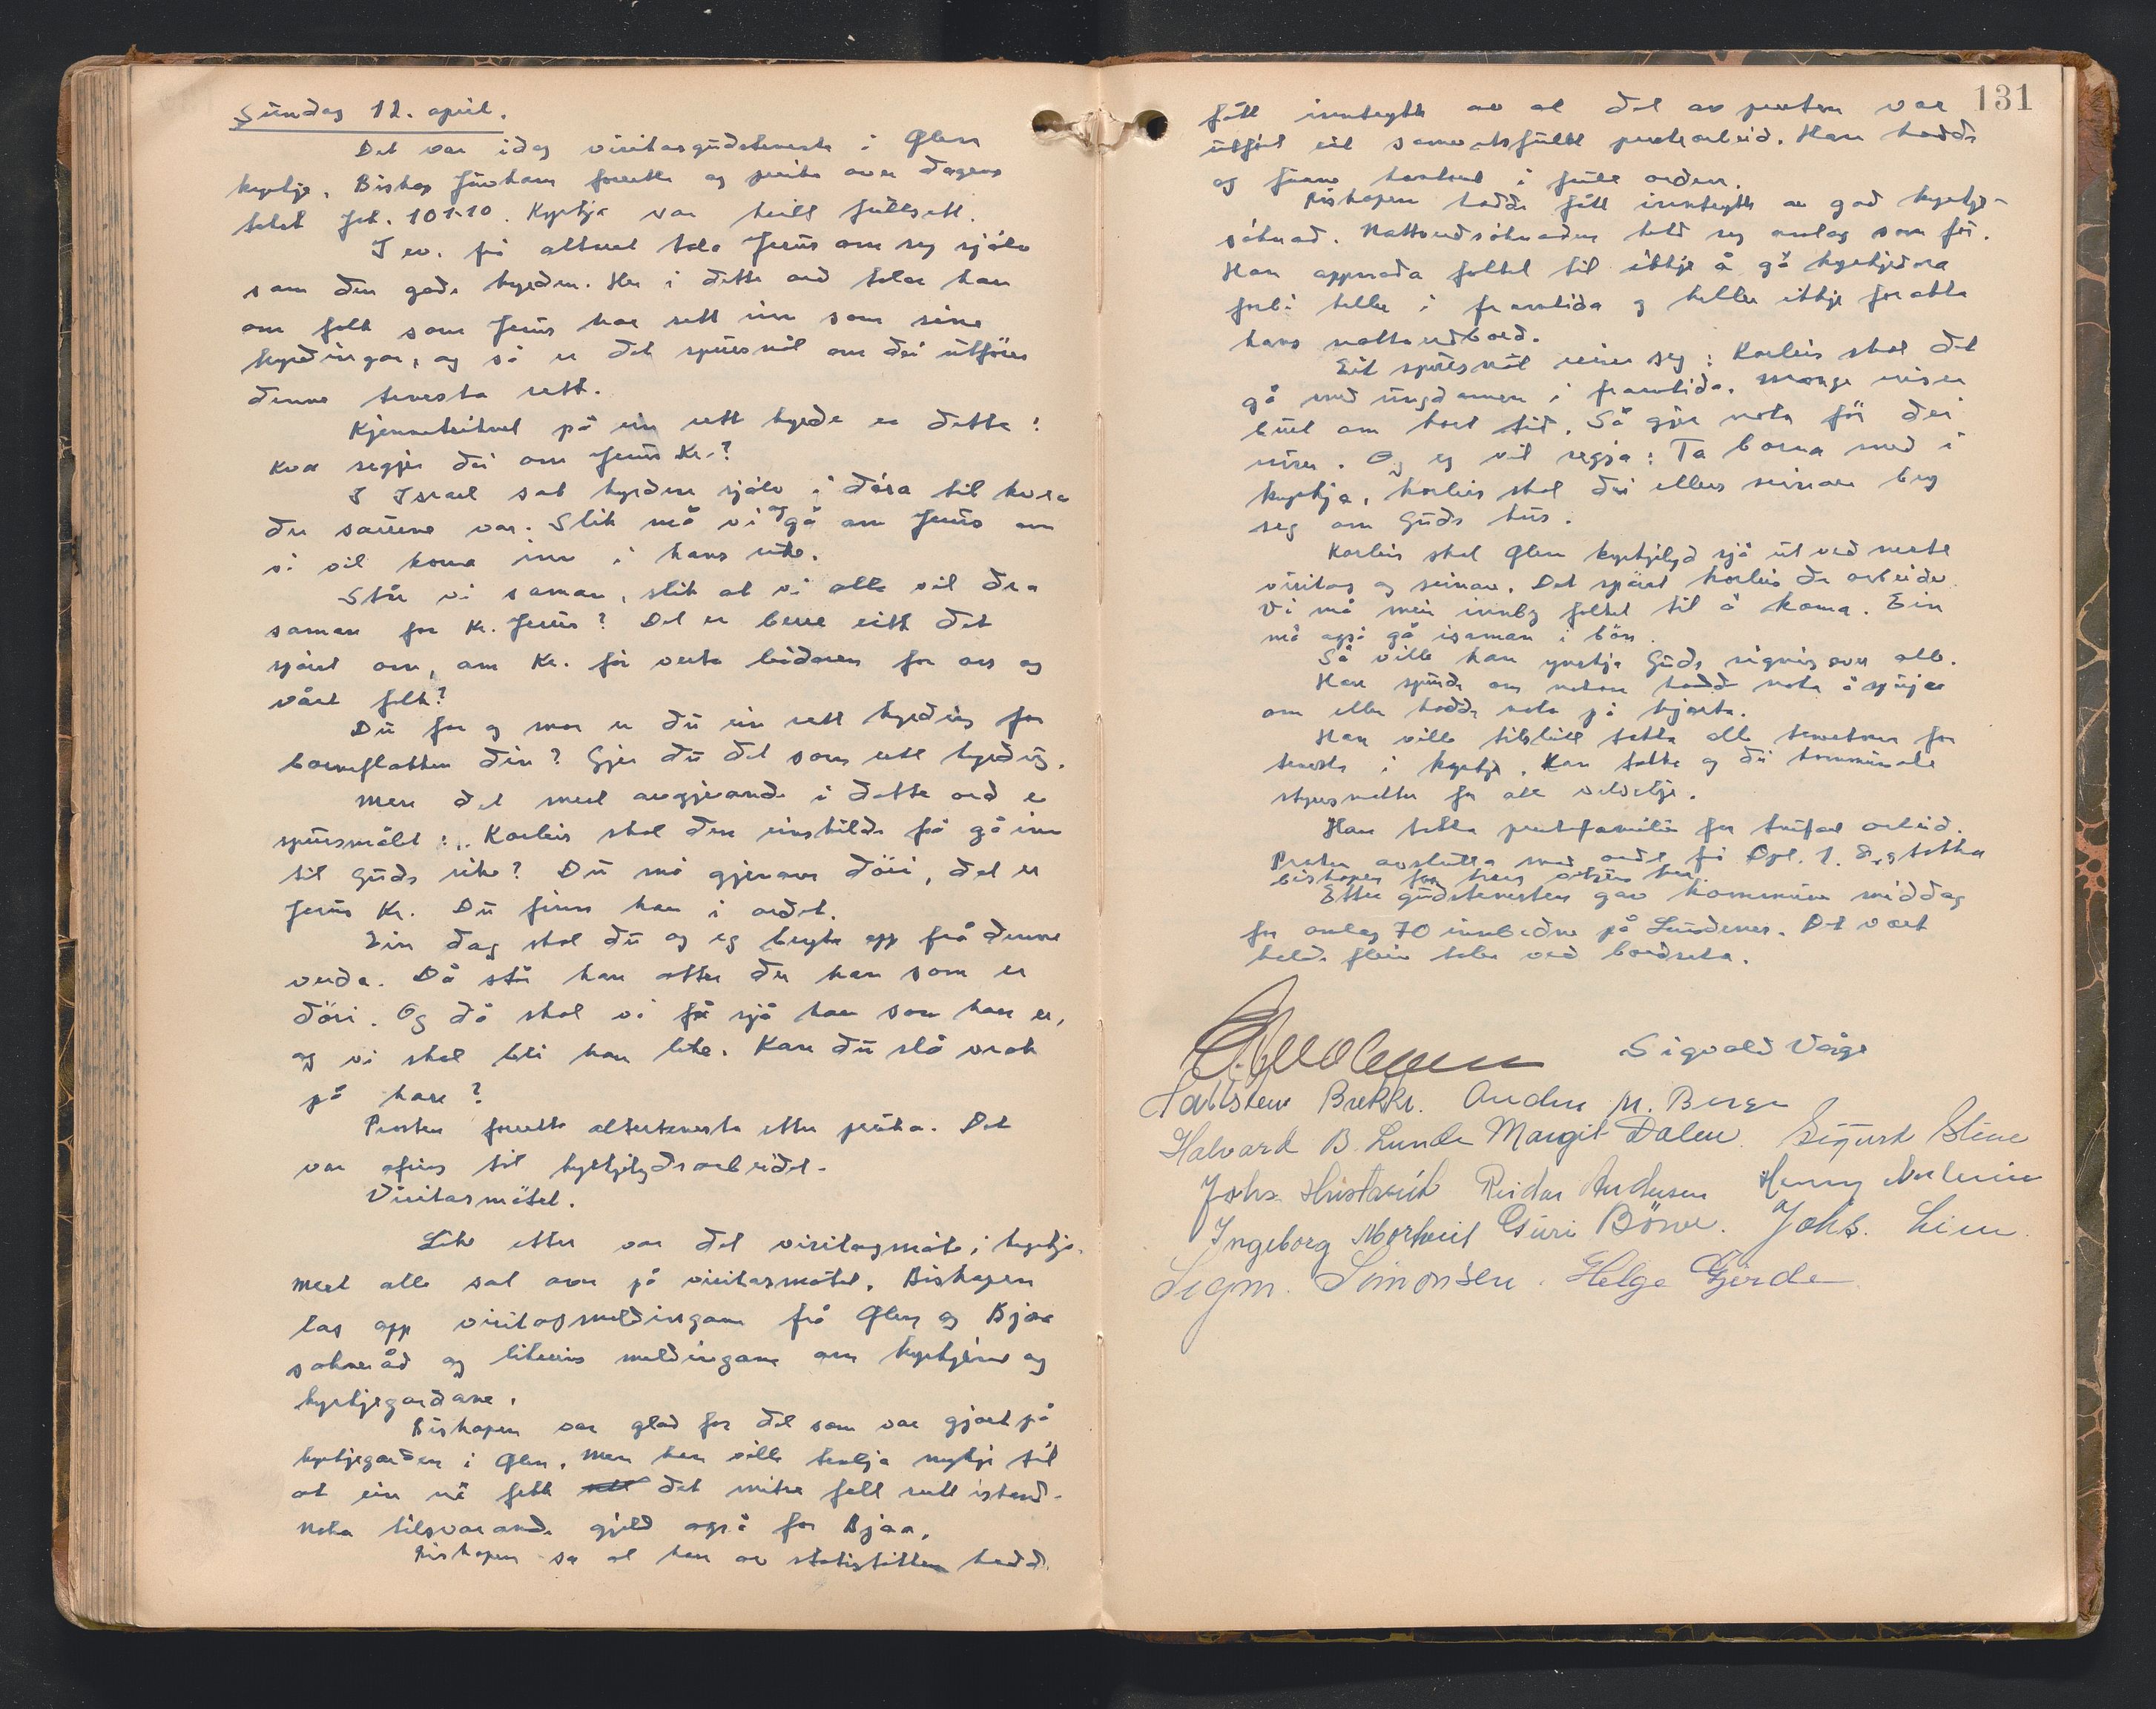 Sundag 12. april.
Det var idag visitasgudsteneste i Ølen
kyrkje. Biskop Juvkam forretta og preika over dagens
tekst Joh. 10 1-10. Kyrkja var heilt fullsett.
I ev. frå alteret tala Jesus om seg sjølv
som den gode hyrden. Her i dette ord talar han
om folk som Jesus har sett inn som sine
hyrdingar, og så er det spursmål om dei utfører
denne tenesta rett.
Kjenneteiknet på ein rett hyrde er dette:
Kva segjer dei om Jesus Kr.?
I Israel sat hyrden sjølv i døra til kvea
der sauene var. Slik må vi og gå om Jesus om
vi vil koma inn i hans rike.
Står vi saman, slik at vi alle vil dra
saman for Kr. Jesus? Det er berre eitt det
spørst om, om Kr. får verta leidaren for oss og
vårt folk?
Du far og mor er du ein rett hyrding for
barneflokken din? Gjer du det som rett hyrding.
Men det mest avgjerande i dette ord er
spursmålet: Korleis skal den einskilde få gå inn
til Guds rike? Du må gjennom døri, det er
Jesus Kr. Du finn han i ordet.
Ein dag skal du og eg bryta opp frå denne
verda. Då står han atter der han som er
døri. Og då skal vi få sjå han som han er,
og vi skal bli han like. Kan du slå vrak
på han?
Presten forretta altertenesta etter preika. Det
var ofring til kyrkjelydsarbeidet.
Visitasmøtet.
Like etter var det visitasmøte i kyrkja.
Mest alle sat over på visitasmøtet. Biskopen
las opp visitasmeldingane frå Ølen og Bjoa
sokneråd og likeeins meldingane om kyrkjene og
kyrkjegardane.
Biskopen var glad for det som var gjort på
kyrkjegarden i Ølen. Men han ville tenkja mykje til
at ein nå fekk det indre fell sett istand.
Noko tilsvarande gjeld også for Bjoa.
Biskopen sa at han av statistikken hadde
131
fått inntrykk av at det av presten var
utført eit samvitsfullt prestearbeid. Han hadde
og funne kontoret i full orden.
Biskopen hadde fått inntrykk av god kyrkje-
søknad. Nattverdsøknaden held seg omlag som før.
Han oppmoda folket til ikkje å gå kyrkjedøra
forbi heller i framtida og heller ikkje forakta
hans nattverdbord.
Eit spursmål reiser seg: Korleis skal det
gå med ungdomen i framtida. Mange reiser
burt om kort tid. Så gjer noko før dei
reiser. Og eg vil segja: Ta borna med i
kyrkja, korleis skal dei ellers seinare bry
seg om Guds hus.
Korleis skal Ølen kyrkjelyd sjå ut ved neste
visitas og seinare. Det spørst korleis de arbeider.
Vi må meir innby folket til å koma. Ein
må også gå isaman i bøn.
Så ville han ynskja Guds signing over alle.
Han spurde om nokon hadde noko å spørja
om eller hadde noko på hjarta.
Han ville tilslutt takka alle tenestemenn for
teneste i kyrkja. Han takka og dei kommunale
styresmakter for all velvilje.
Han takka prestefamilien for trufast arbeid.
Presten avslutta med ordet frå Apl. 1. 8 og takka
bispen for hans visitas her.
Etter gudstenesten gav kommunen middag
for omlag 70 innbedne på Lundenes. Det vart
halde fleire talar ved bordseta.
Sigvald Våge
Hallstein Brekke. Anders M. Berge
Halvard B. Lunde Margit Dalen. Sigurd Bleie
Johs Hustveit Reidar Andersen Henny
Ingeborg Mortveit Guri Bönre. Johs. Lien.
Sigm. Simonsen. Helge Gjerde